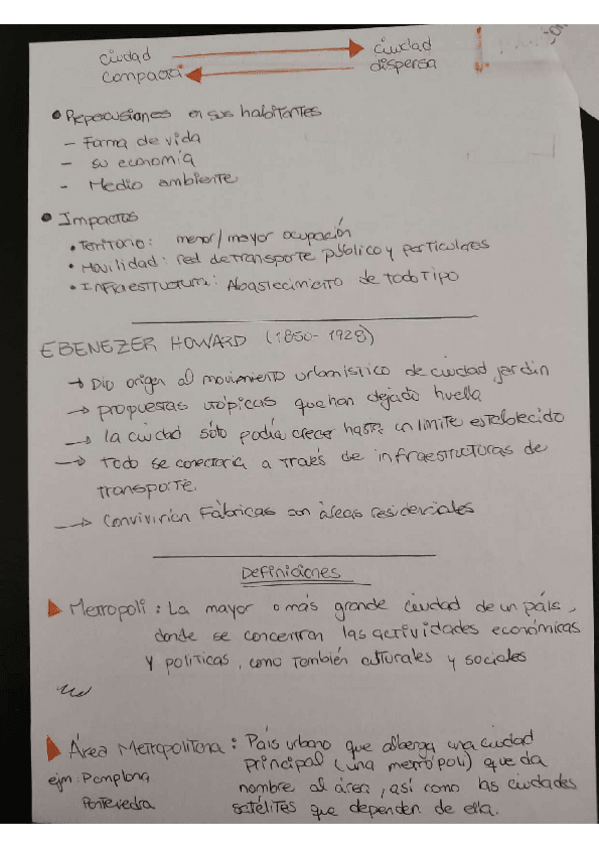 ciudad ciudad
compacta dispersa
• Repercusiones en sus habitantes
- Forma de vida
- su economía
- Medio ambiente
• Impactos
• Territorio: menor/mayor ocupación
• Movilidad: red de transporte público y particulares
• Infraestructura: Abastecimiento de todo tipo
EBENEZER HOWARD (1850-1928)
→ Dio origen al movimiento urbanístico de ciudad jardín
→ propuestas utópicas que han dejado huella
→ la ciudad sólo podía crecer hasta un límite establecido
→ Todo se conectaría a través de infraestructuras de
transporte.
→ Convivirían Fábricas con áreas residenciales
Definiciones
Metropoli: La mayor o más grande ciudad de un país,
donde se concentran las actividades económicas
y políticas, como también culturales y sociales
Área Metropolitana: País urbano que alberga una ciudad
ejm: Pamplona principal (una metrópoli) que da
Pontevedra nombre al área, así como las ciudades
satélites que dependen de ella.